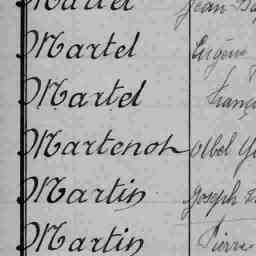 Martel
Martel Eugène
Martel
Martenot Abel
Martin Joseph
Martin Pierre